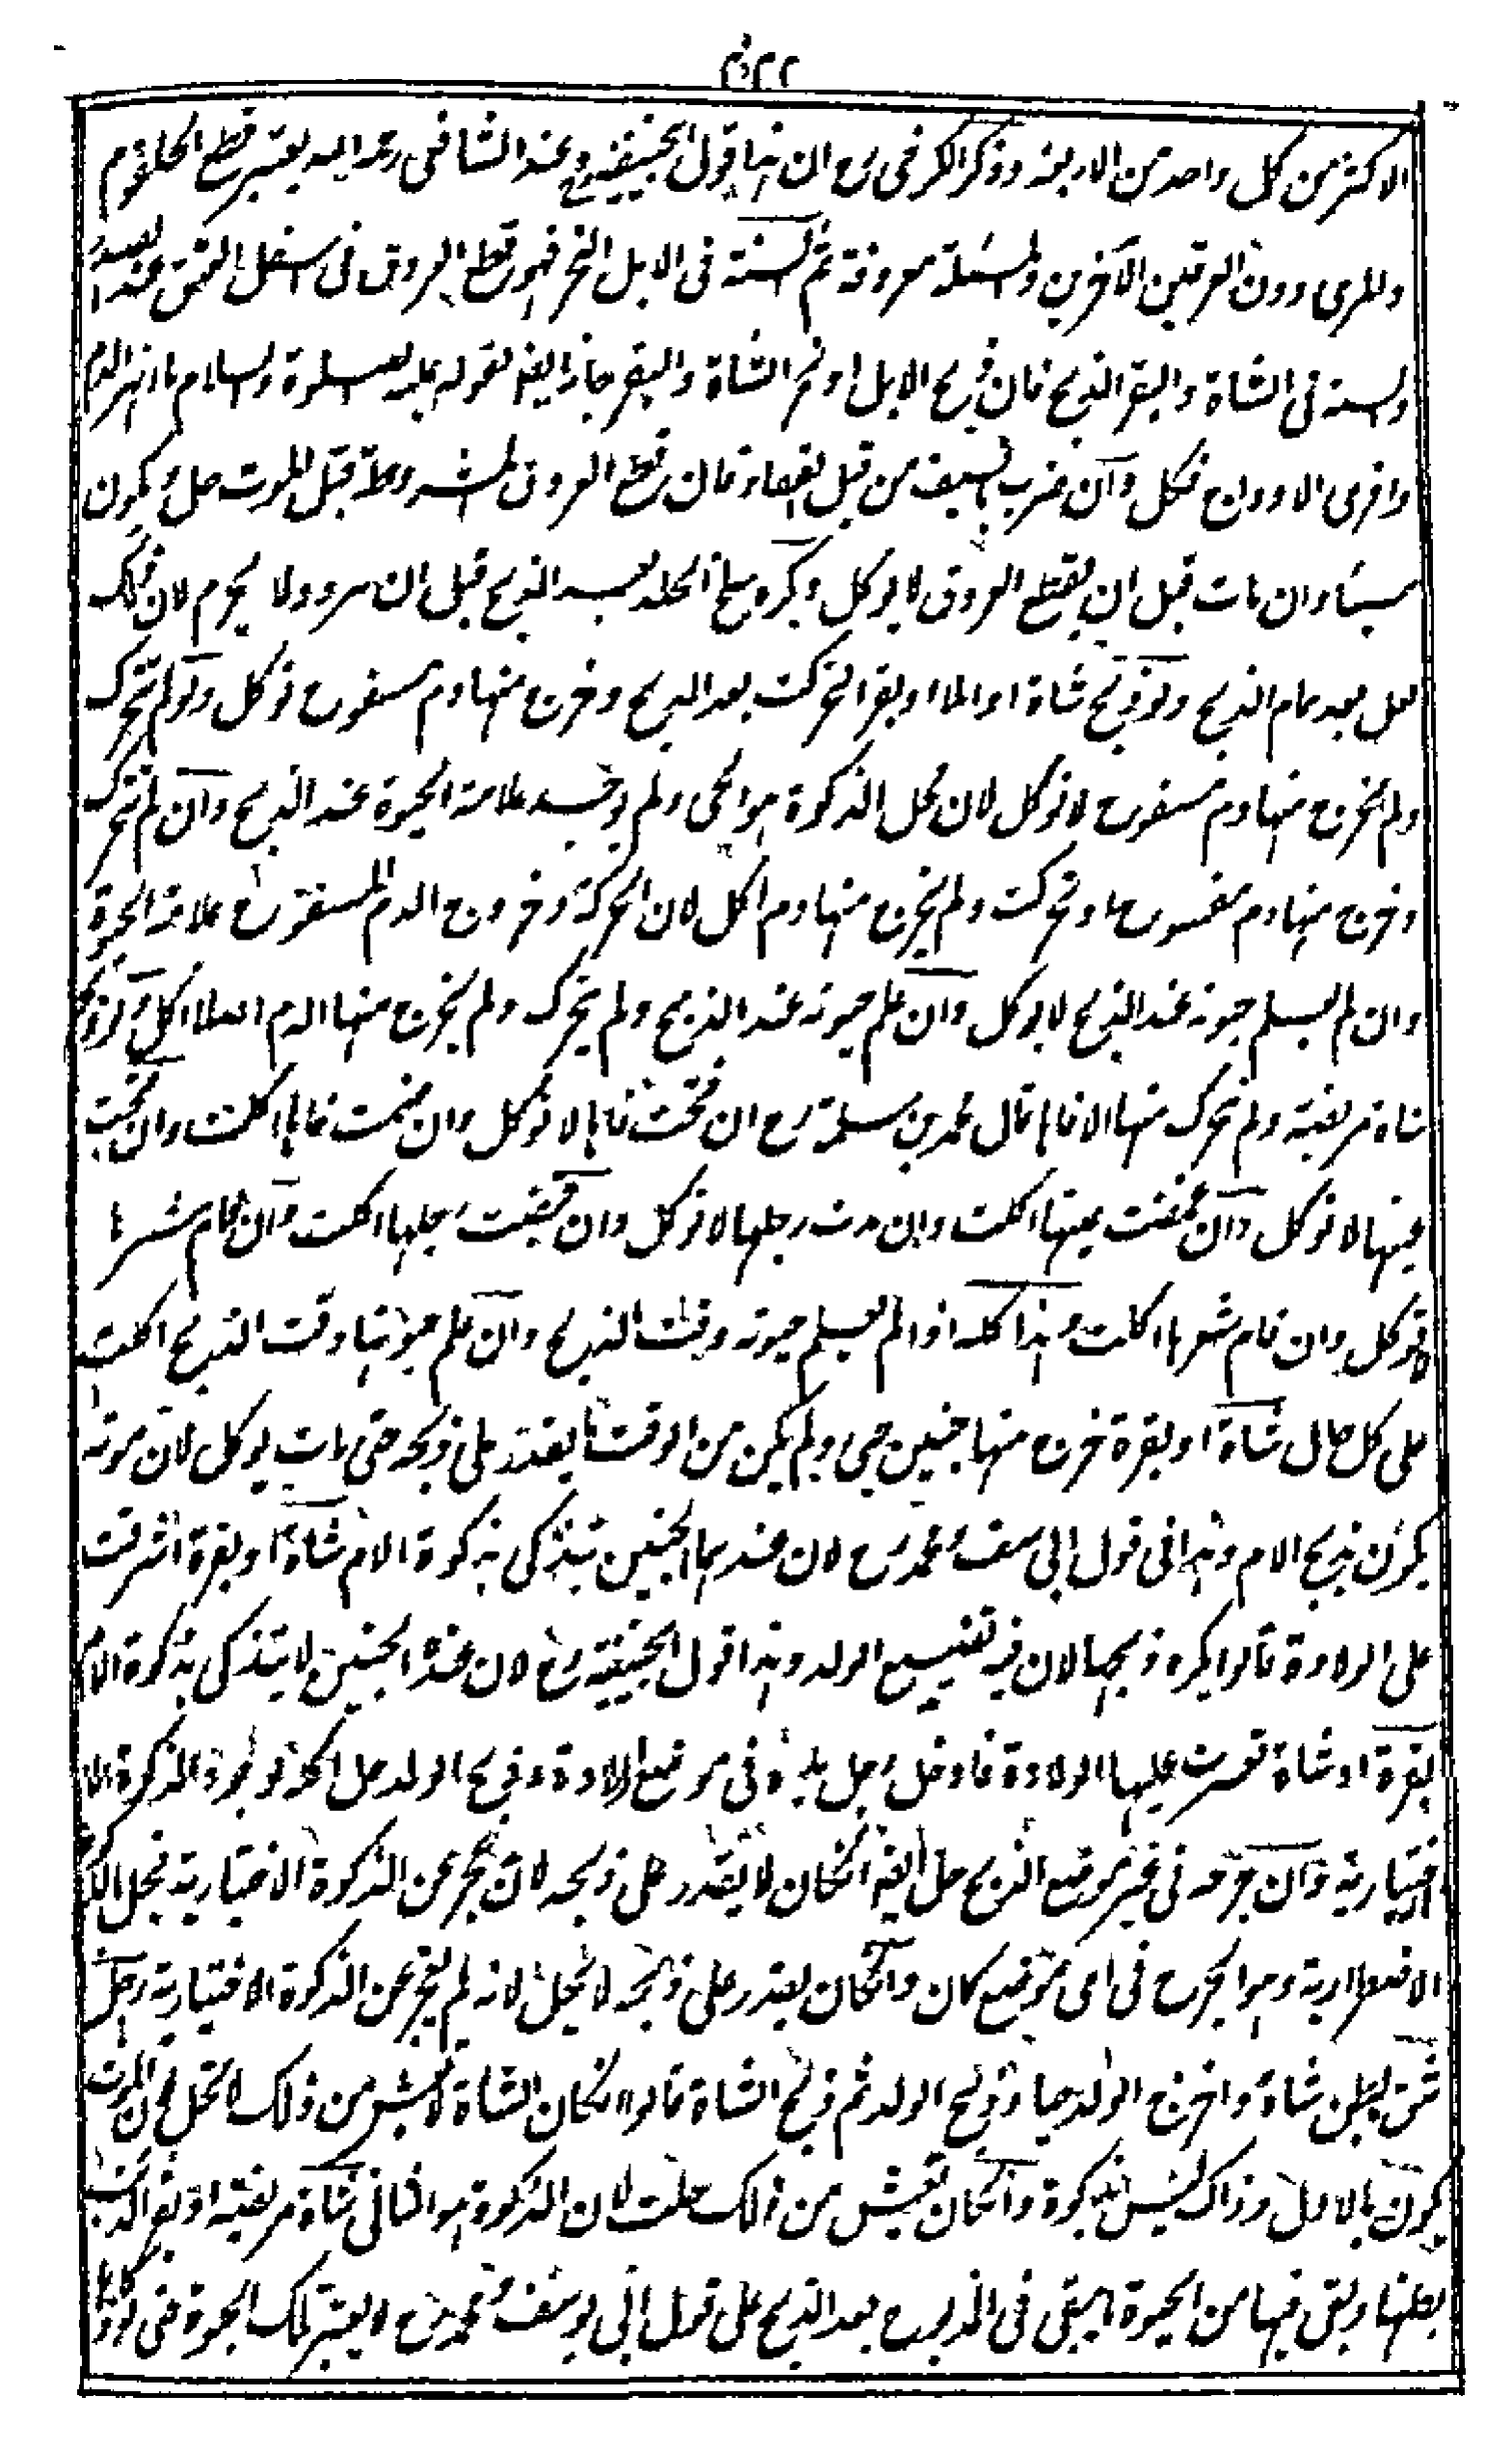 الاكثر من كل واحد من الاربعة وذكر الكرخى رح ان هذا قول ابيحنيفة رح وعند الشافعى رحمه الله يعتبر قطع الحلقوم
والمرى دون العرقين الآخرين والمسئلة معروفة ثم السنة فى الابل النحر فهو قطع العروق فى اسفل العنق عند الصدر
والسنة فى الشاة والبقر الذبح فان ذبح الابل او نحر الشاة والبقر جاز ايضا لقوله عليه الصلوة والسلام ما انهر الدم
وافرى الاوداج فكل وان ضرب بالسيف من قبل القفاء فان قطع العروق المشروطة قبل الموت حل ويكون
مسيئا وان مات قبل ان يقطع العروق لا يوكل ويكره سلخ الجلد بعد الذبح قبل ان تبرد ولا يحرم لان ذلك
بعد تمام الذبح ولو ذبح شاة او بقرا تحركت بعد الذبح وخرج منها دم مسفوح توكل ولو لم تتحرك
ولم يخرج منها دم مسفوح لا توكل لان محل الذكوة هو الحى ولم يوجد علامة الحيوة عند الذبح وان لم تتحرك
وخرج منها دم مسفوح او تحركت ولم يخرج منها دم اكل لان الحركة وخروج الدم المسفوح علامة الحيوة
وان لم يعلم حيوته عند الذبح لا يوكل وان علم حيوته عند الذبح ولم يتحرك ولم يخرج منها الدم اصلا اكل ولو ذبح
شاة مريضة ولم تحرك منها الا فاها قال محمد بن سلمة رح ان فتحت فاها لا توكل وان ضمت فاها اكلت وان فتحت
عينها لا توكل وان غمضت عينها اكلت وان مدت رجلها لا توكل وان قبضت رجلها اكلت وان نام شعرها
لا توكل وان قام شعرها اكلت وهذا كله اذا لم يعلم حيوته وقت الذبح وان علم حيوتها وقت الذبح اكلت
على كل حال شاة او بقرة خرج منها جنين حى ولم يكن من الوقت ما يقدر على ذبحه حتى مات يوكل لان موته
يكون بذبح الام وهذا فى قول ابى يوسف ومحمد رح لان عندهما الجنين يتذكى بذكوة الام شاة او بقرة اشرفت
على الولادة قالوا يكره ذبحها لان فيه تضييع الولد وهذا قول ابيحنيفة رح لان عنده الجنين لا يتذكى بذكوة الام
بقرة او شاة تعسرت عليها الولادة فادخل رجل يده فى موضع الولادة وذبح الولد حل اكله لوجود الذكوة الا
ختيارية وان جرحه فى غير موضع الذبح حل ايضا انكان لا يقدر على ذبحه لانه عجز عن الذكوة الاختيارية فيحل الذكوة
الاضطرارية وهو الجرح فى اى موضع كان وانكان يقدر على ذبحه لا يحل لانه لم يعجز عن الذكوة الاختيارية رجل
شق بطن شاة واخرج الولد حيا وذبح الولد ثم ذبح الشاة قالوا انكان الشاة لا تعيش من ذلك لا تحل لان الموت
يكون بالاول وذاك ليس بذكوة وانكان تعيش من ذلك حلت لان الذكوة هو الثانى شاة مريضة او بقر الذئب
بطنها وبقى فيها من الحيوة ما يبقى فى المذبوح بعد الذبح على قول ابى يوسف ومحمد رح لا يعتبر تلك الحيوة حتى لو ذكاها